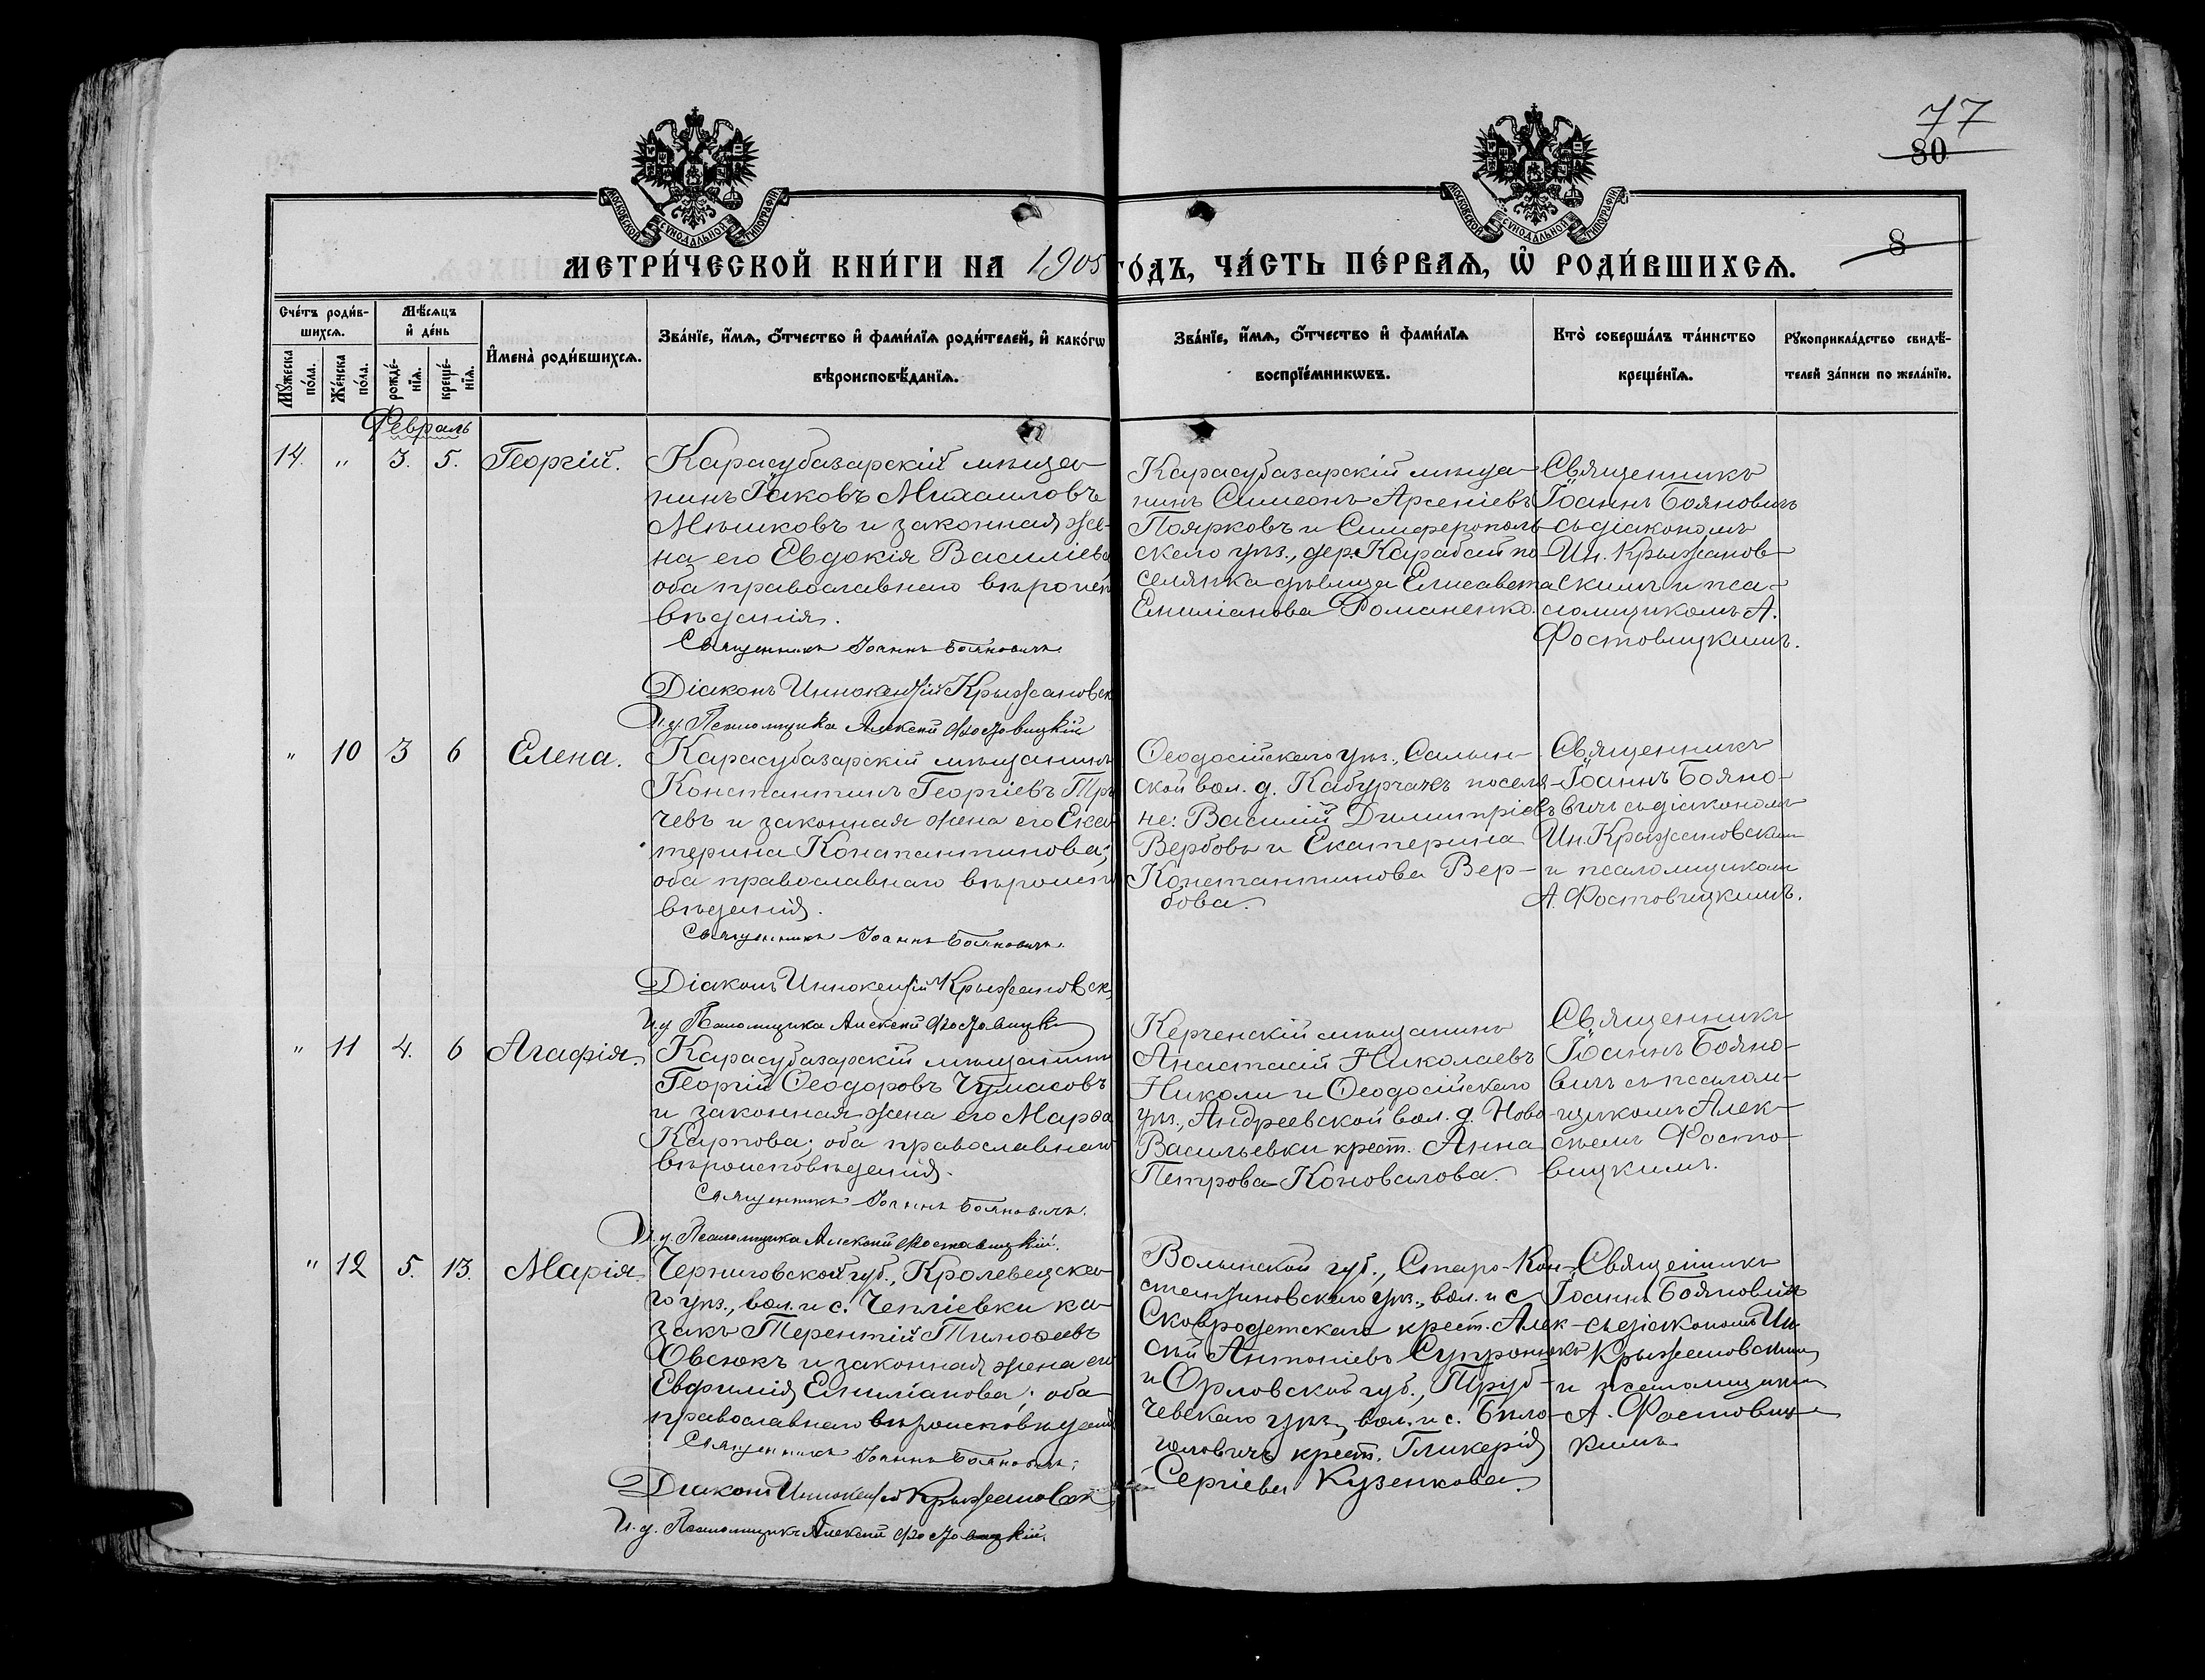 77
80
МОСКОВСКОЙ СѴНОДАЛЬНОЙ ТИПОГРАФІИ
МОСКОВСКОЙ СѴНОДАЛЬНОЙ ТИПОГРАФІИ
8
МЕТРИ́ЧЕСКОЙ КНИ́ГИ НА 1905 ГО́ДЪ, ЧА́СТЬ ПЕ́РВАѦ, Ѡ҆ РОДИ́ВШИХСѦ.
Сче́тъ роди́в-
шихсѧ.
Мꙋ́жеска по́ла.
Же́нска по́ла.
Мѣ́сяцъ
и҆ де́нь
рожде́-
нїѧ.
креще́-
нїѧ.
И҆мена̀ роди́вшихсѧ.
Зва́нїе, и҆́мѧ, ѻ҆́тчество и҆ фами́лїѧ роди́телей, и҆ како́гѡ
вѣроисповѣ́данїѧ.
Зва́нїе, и҆́мѧ, ѻ҆́тчество и҆ фами́лїѧ
воспрїе́мникѡвъ.
Кто̀ соверша́лъ та́инство
креще́нїѧ.
Рꙋкоприкла́дство свидѣ́-
телей за́писи по жела́нїю.
Февраль
14. " 3. 5. Георгій.
Карасубазарскій мѣща-
нинъ Іаковъ Михаиловъ
Мѣшковъ и законная же-
на его Евдокія Василіева
оба православнаго вѣроисп
вѣданія.
Священникъ Іоаннъ Бояновичъ.
Діаконъ Иннокентій Крыжановск
И.д. Псаломщика Алексій Фостовицкій
Карасубазарскій мѣща-
нинъ Симеонъ Арсеніевъ
Поярковъ и Симферополь-
скаго уѣз., дер. Карабай по-
селянка дѣвица Елисавета
Емиліанова Романенко.
Священникъ
Іоаннъ Бояновичъ
съ діакономъ
Ин. Крыжанов-
скимъ и пса-
ломщикомъ А.
Фостовицкимъ.
" 10 3 6 Елена.
Карасубазарскій мѣщанинъ
Константинъ Георгіевъ
чевъ и законная жена его Ека-
терина Константинова;
оба православнаго вѣроисп
вѣданія.
Священникъ Іоаннъ Бояновичъ.
Діаконъ Иннокентій Крыжановск
И.д. Псаломщика Алексій Фостовицкі
Ѳеодосійскаго уѣз.,
ской вол. д. Кабурчакъ поселя-
не: Василій Димитріевъ
Вербовъ и Екатерина
Константинова Вер-
бова.
Священникъ
Іоаннъ Бояно-
вичъ съ діакономъ
Ин. Крыжановским
и псаломщиком
А. Фостовицкимъ.
" 11 4. 6 Агафія.
Карасубазарскій мѣщанинъ
Георгій Ѳеодоровъ Чумасовъ
и законная жена его Марѳа
Карпова; оба православнаго
вѣроисповѣданія.
Священникъ Іоаннъ Бояновичъ.
И.д. Псаломщика Алексій Фостовицкій.
Керченскій мѣщанинъ
Анастасій Николаевъ
Николи и Ѳеодосійскаго
уѣз., Андреевской вол. д. Ново-
Васильевки крест. Анна
Петрова Коновалова.
Священникъ
Іоаннъ Бояно-
вичъ съ псалом-
щикомъ Алек-
сѣемъ Фосто-
вицкимъ.
" 12 5. 13. Марія
Черниговской губ., Кролевецска-
го уѣз., вол. и с. Чепліевки ка-
закъ Терентій Тимоѳеевъ
Овсюкъ и законная жена его
Евфимія Емиліанова; оба
православнаго вѣроисповѣдані
Священникъ Іоаннъ Бояновичъ;
Діаконъ Иннокентій Крыжановск
И.д. Псаломщикъ Алексій Фостовицкій.
Волынской губ., Старо-Кон-
стантиновскаго уѣз., вол. и с
Сковродетскаго крест. Алек-
сѣй Антоніевъ Супронюкъ
и Орловской губ., Труб-
чевскаго уѣз., вол. и с. Бѣло-
головичъ крест. Гликерія
Сергіева Кузенкова.
Священникъ
Іоаннъ Бояновичъ
съ діакономъ Ин.
Крыжановскимъ
и псаломщикомъ
А. Фостовиц-
кимъ.